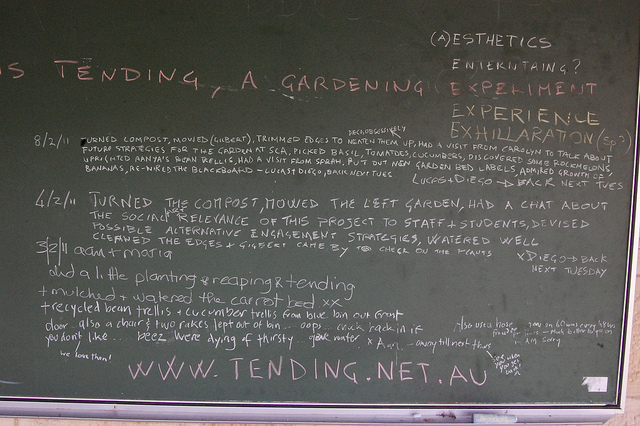 (A)ESTHETICS
ENTERTAINING?
S TENDING, A GARDENING EXPERIMENT
EXPERIENCE
EXHILLARATION (sp?)
OBSESSIVELY
8/2/11 TURNED COMPOST, MOWED (GILBERT), TRIMMED EDGES TO NEATEN THEM UP, HAD A VISIT FROM CAROLYN TO TALK ABOUT
FUTURE STRATEGIES FOR THE GARDEN AT SCA, PICKED BASIL, TOMATOES, CUCUMBERS, DISCOVERED SOME ROCKMELONS,
UPRIGHTED AANYA'S BEAN TRELLIS, HAD A VISIT FROM SARAH, PUT OUT NEW GARDEN BED LABELS, ADMIRED GROWTH OF
BANANAS, RE-WIRED THE BLACKBOARD - LUCAS + DIEGO, BACK NEXT TUES
LUCAS + DIEGO → BACK NEXT TUES
4/2/11 TURNED THE COMPOST, MOWED THE LEFT GARDEN, HAD A CHAT ABOUT
THE SOCIAL RELEVANCE OF THIS PROJECT TO STAFF + STUDENTS, DEVISED
POSSIBLE ALTERNATIVE ENGAGEMENT STRATEGIES, WATERED WELL
CLEANED THE EDGES + GILBERT CAME BY TO CHECK ON THE PLANTS
X DIEGO → BACK
NEXT TUESDAY
3/2/11 maria
did a little planting + reaping + tending
+ mulched + watered the carrot bed xx
+ recycled bean trellis + cucumber trellis from blue bin out front
door.. also a chair + two rakes left out of bin... oops... back in if
you dont like.... beez were dying of thirsty.. gave water x away till next thurs
Also used a hose
we love them!
WWW.TENDING.NET.AU